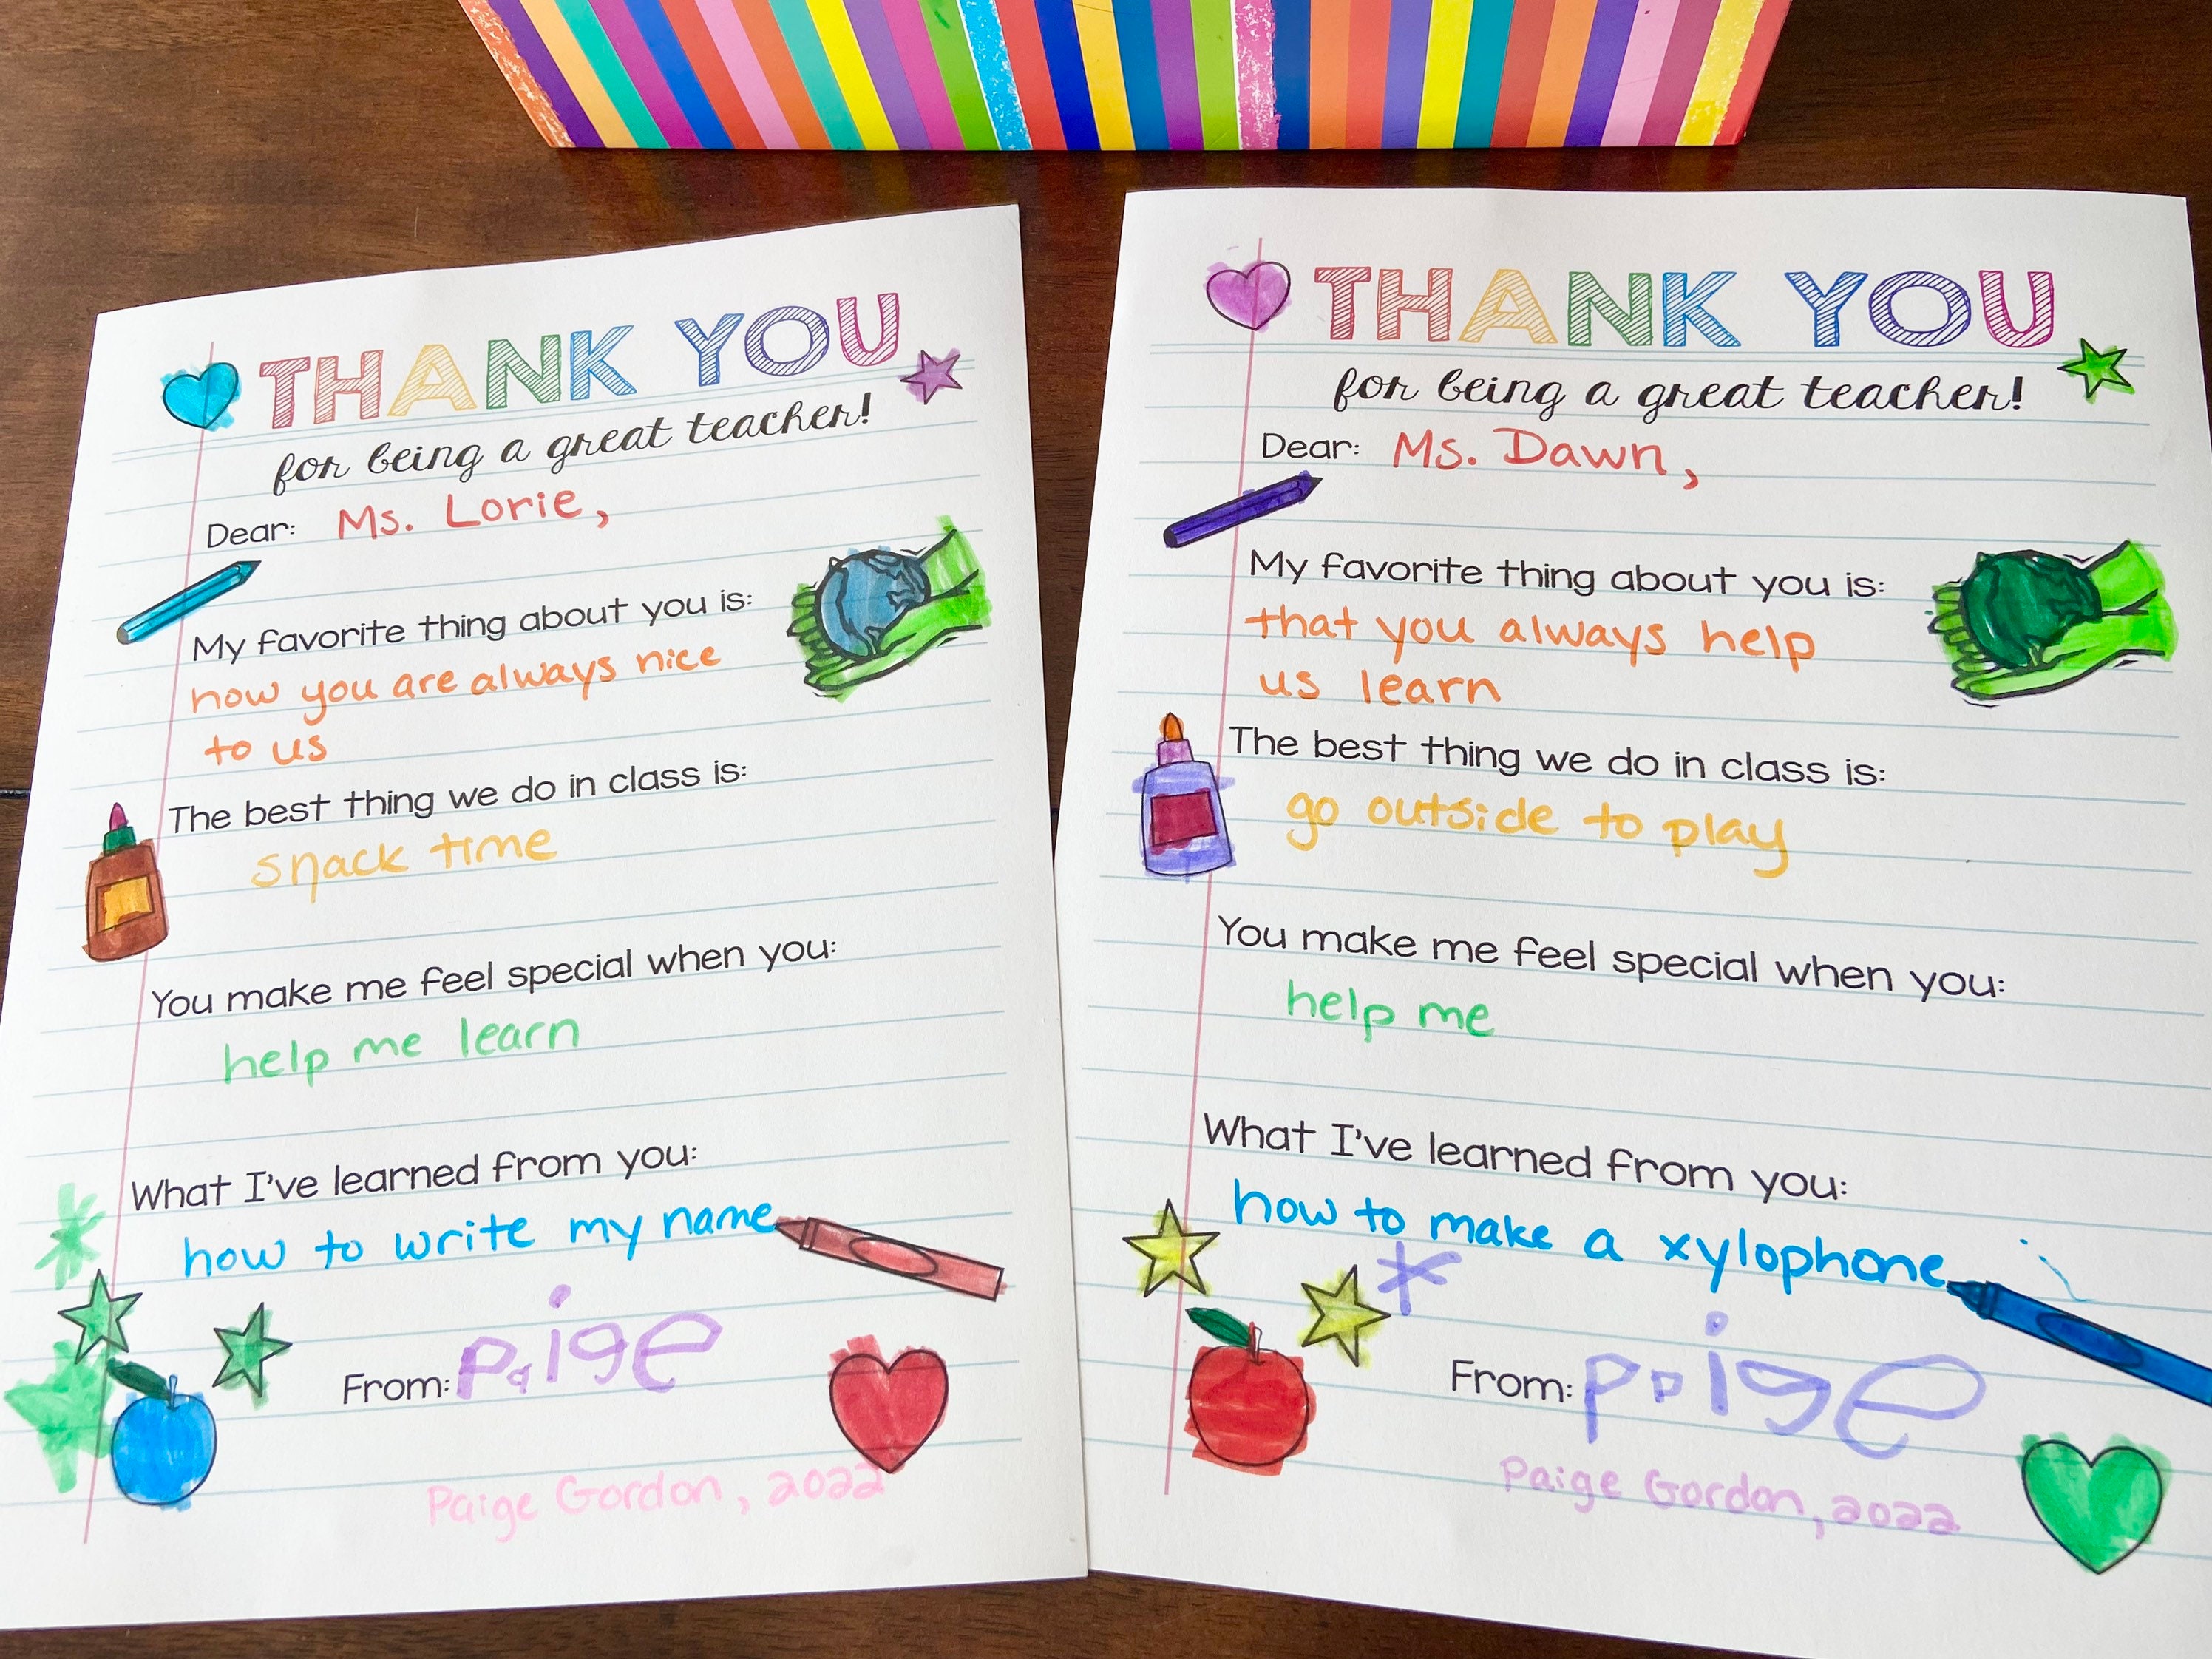 THANK YOU
for being a great teacher!
Dear: Ms. Lorie,
My favorite thing about you is:
how you are always nice
to us
The best thing we do in class is:
snack time
You make me feel special when you:
help me learn
What I've learned from you:
how to write my name
From: Paige
Paige Gordon, 2022
THANK YOU
for being a great teacher!
Dear: Ms. Dawn,
My favorite thing about you is:
that you always help
us learn
The best thing we do in class is:
go outside to play
You make me feel special when you:
help me
What I've learned from you:
how to make a xylophone
From: Paige
Paige Gordon, 2022